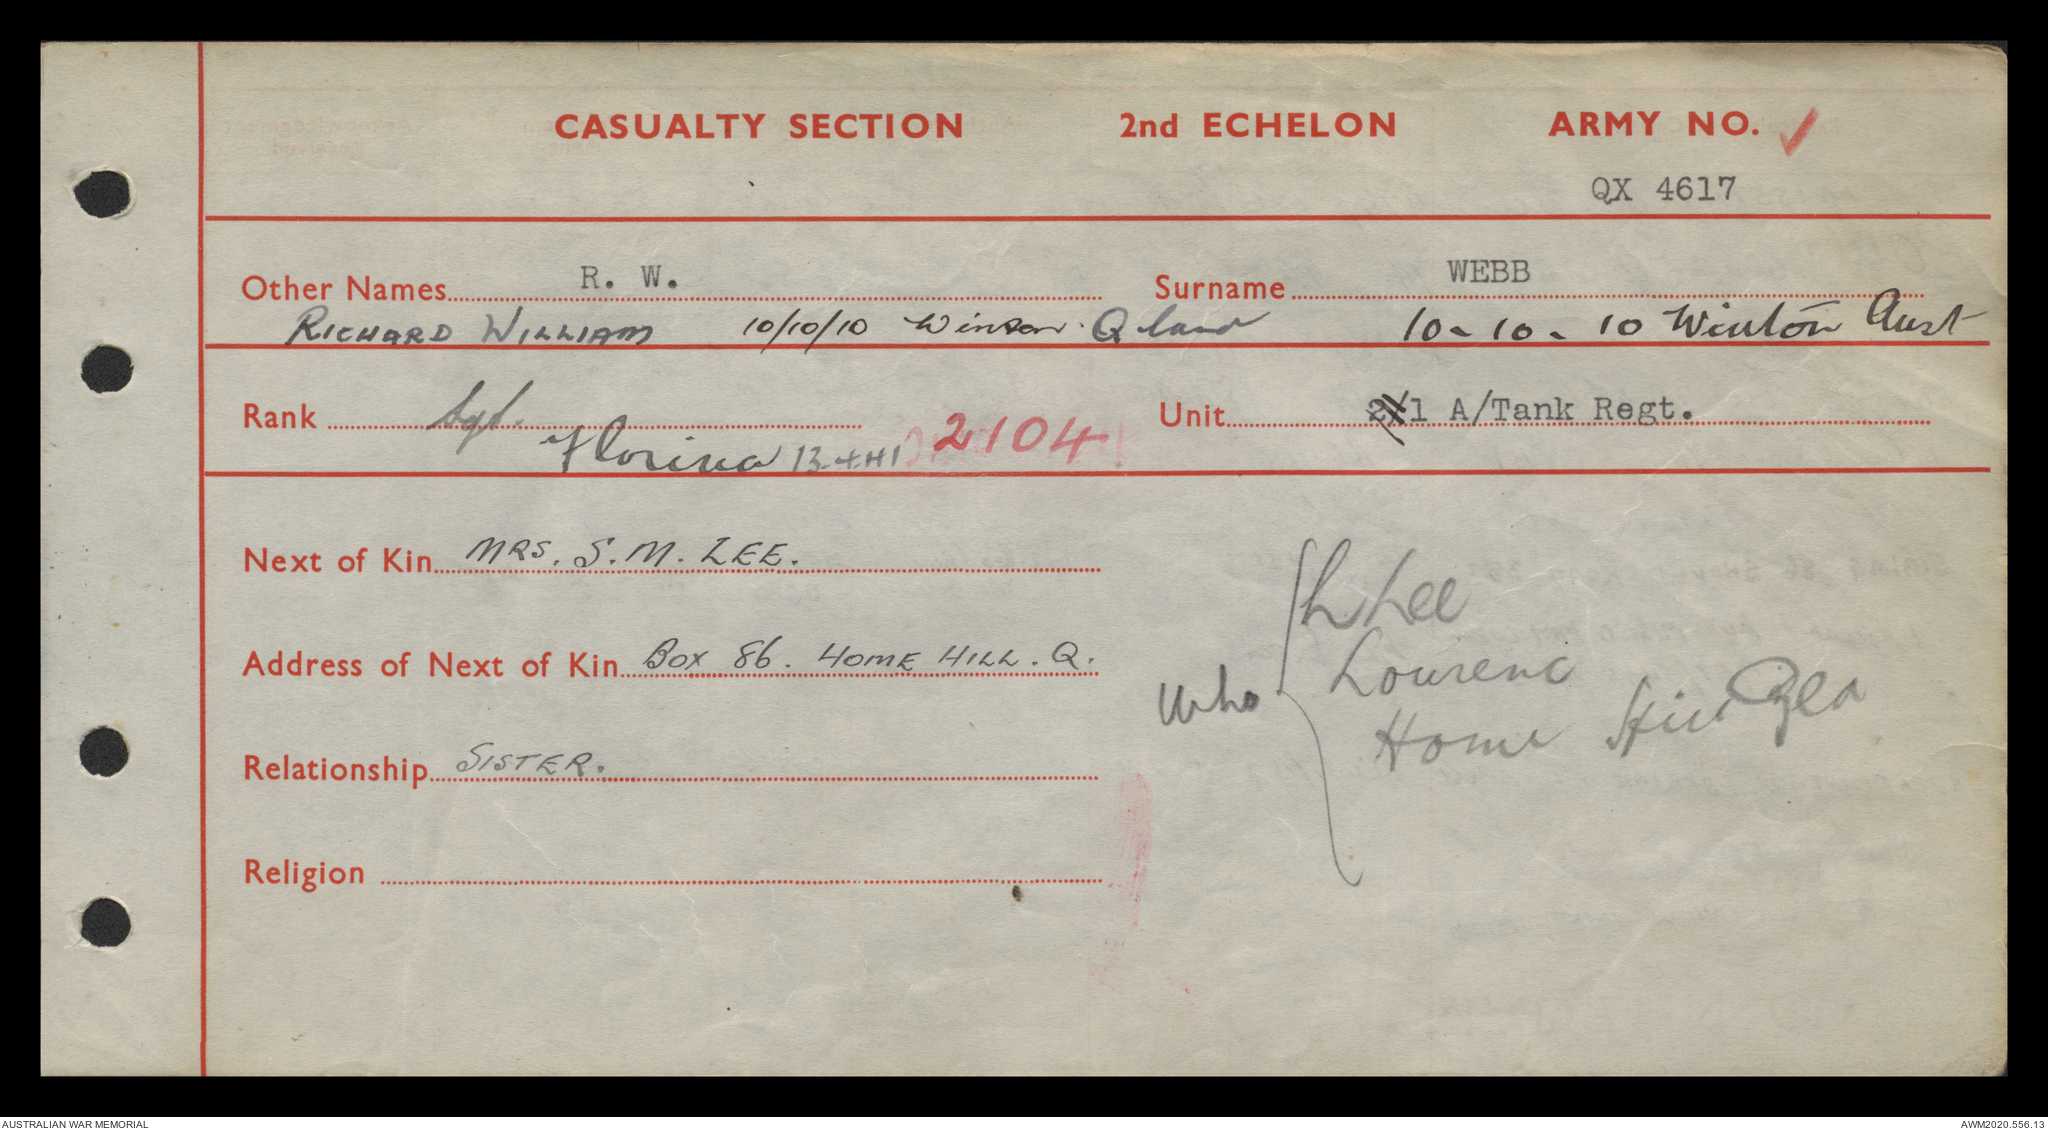 CASUALTY SECTION 2nd ECHELON ARMY NO.
QX 4617
Other Names R. W. Surname WEBB
RICHARD WILLIAM 10/10/10 Winton. Q'land 10-10-10 Winton Aust
Rank Sgt. Unit 2/1 A/Tank Regt.
Florina 13-4-41 2104
Next of Kin MRS. S. M. LEE.
Lee
Address of Next of Kin Box 86. HOME HILL. Q.
Who
Home Hill Qld
Relationship SISTER.
Religion
AUSTRALIAN WAR MEMORIAL AWM2020.556.13